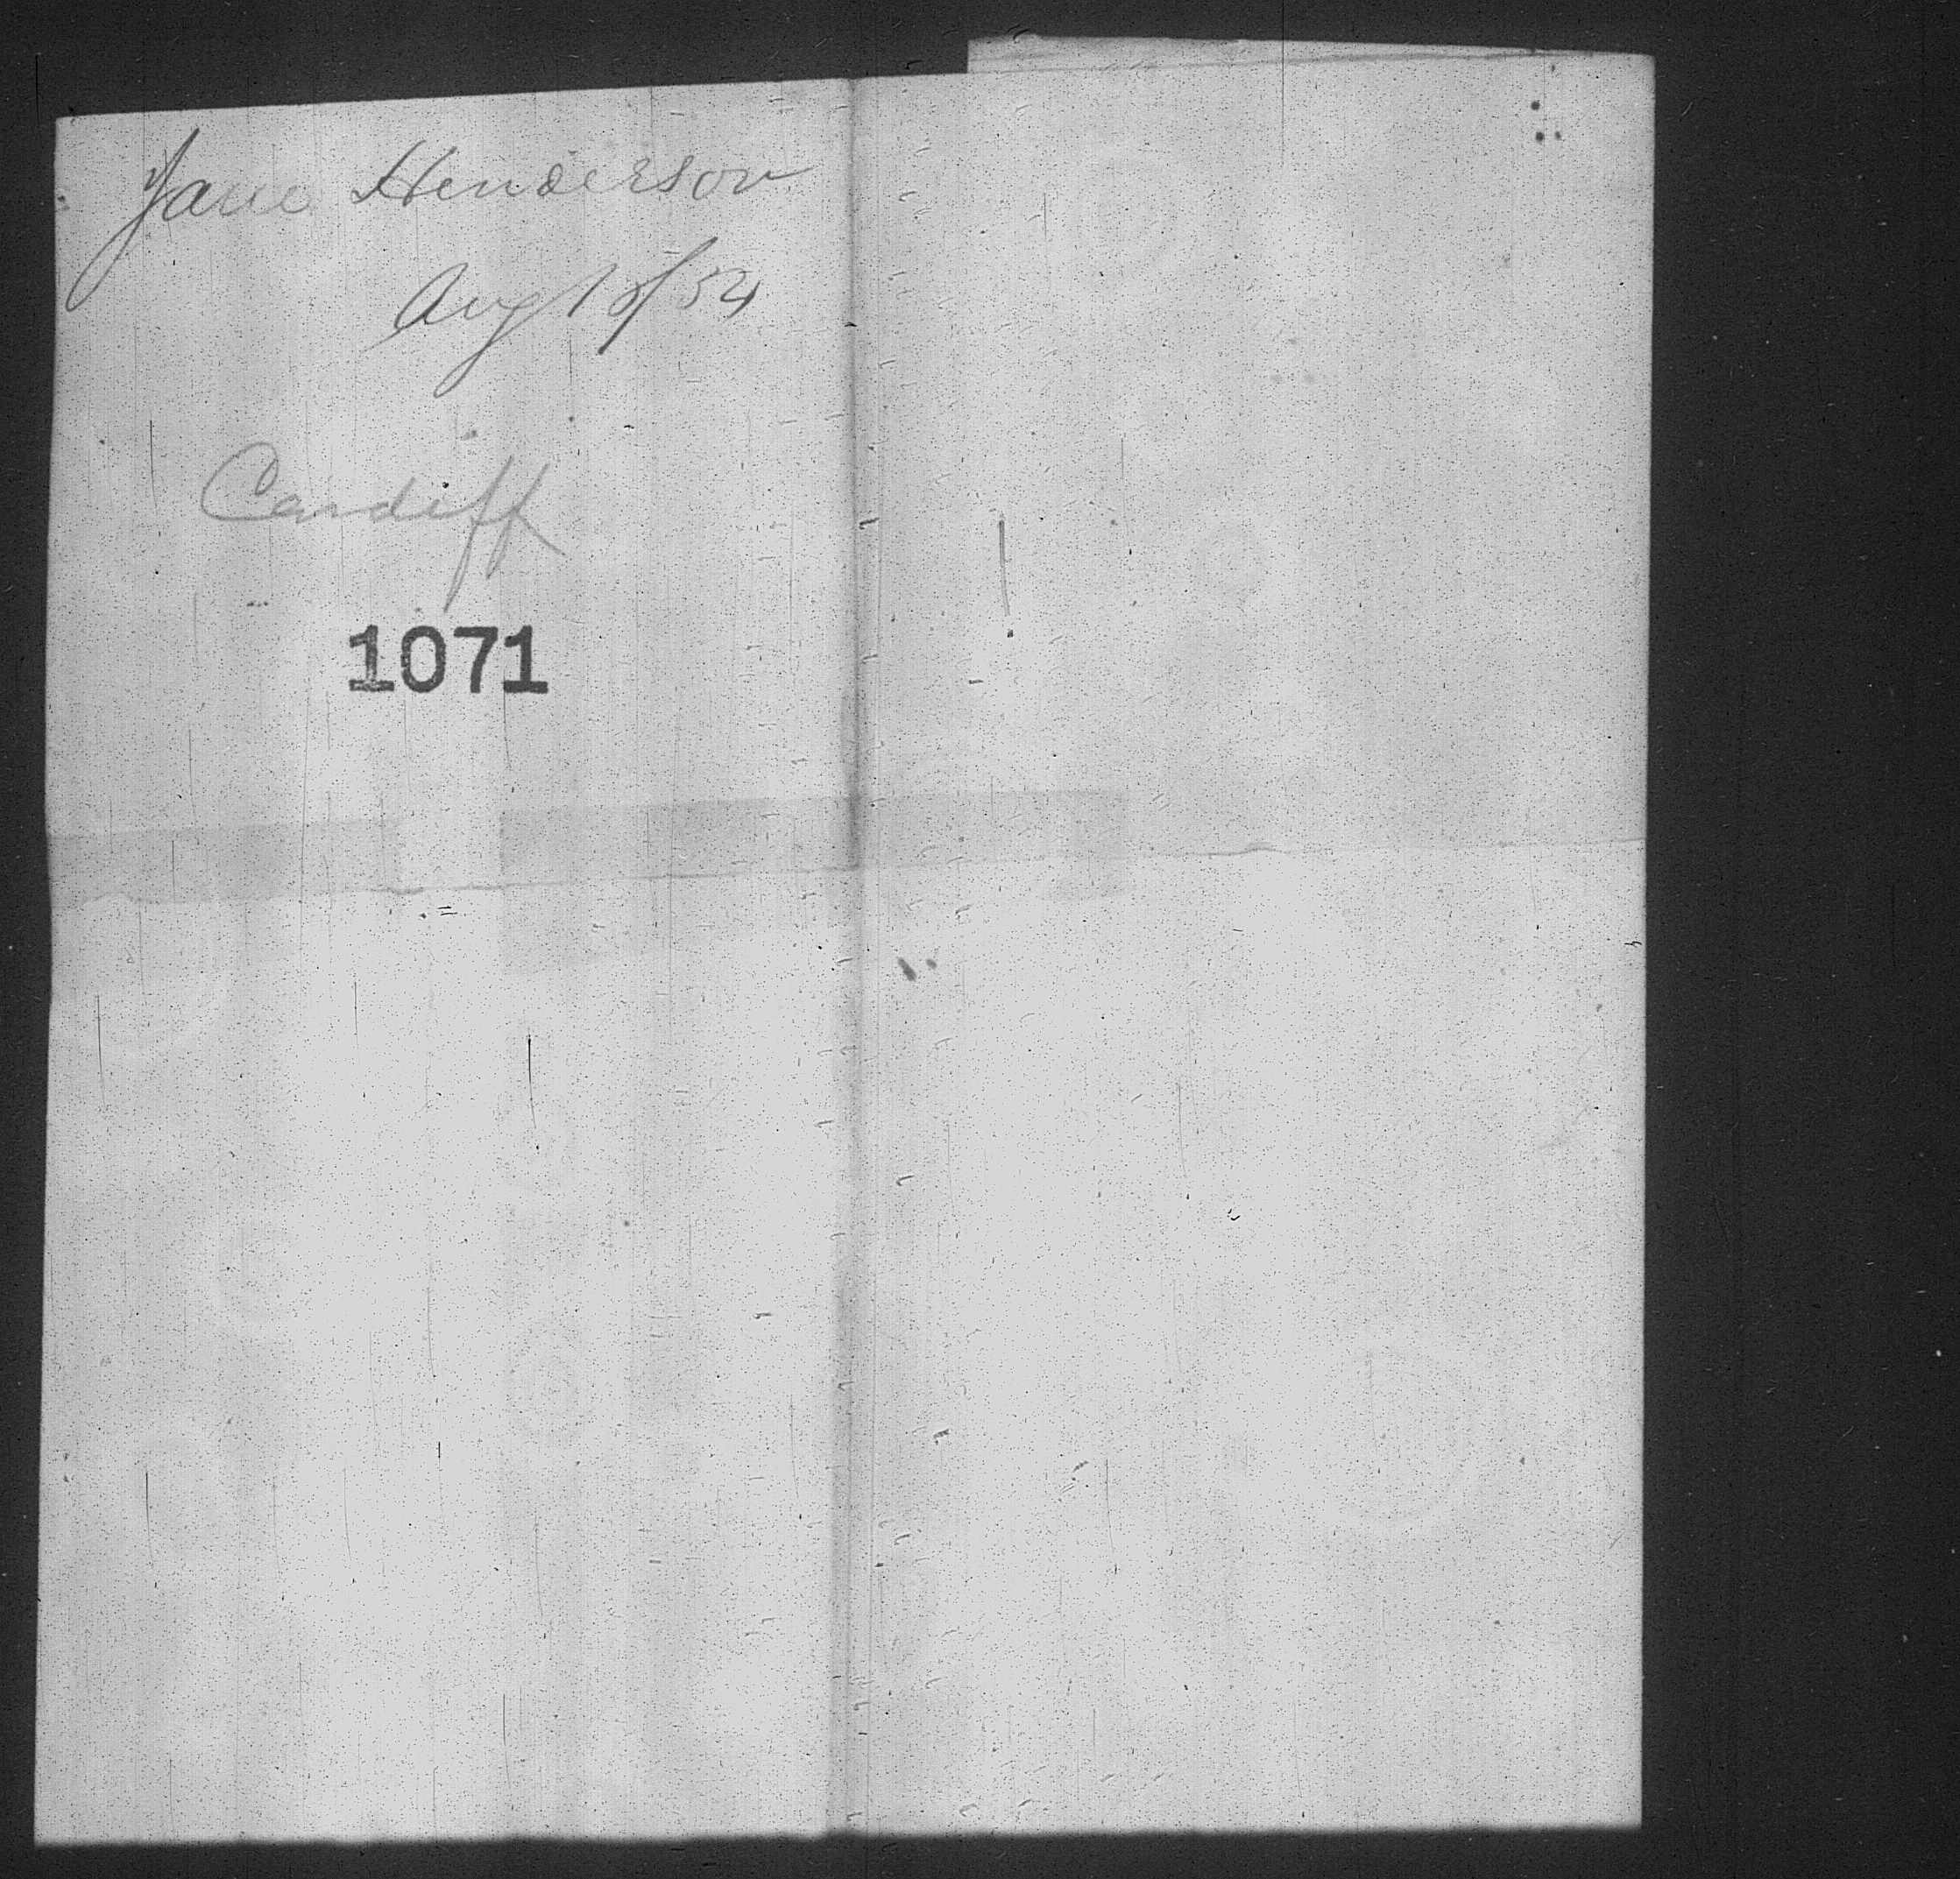 Jane Henderson
Aug 18/54
Cardiff
1071